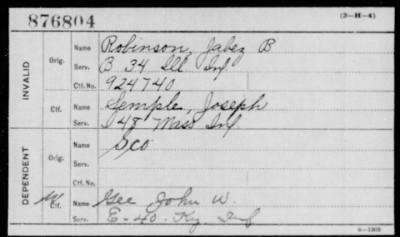 876804
(3-H-4)
INVALID
Orig.
Name Robinson, Jabez B
Serv. B 34 Ill Inf.
Ctf. No. 924740
Ctf.
Name Semple, Joseph
Serv. I 48 Mass Inf.
DEPENDENT
Orig.
Name
Serv.
Ctf. No.
Ctf.
Name Gee John W.
Serv. E-40-Ky Inf